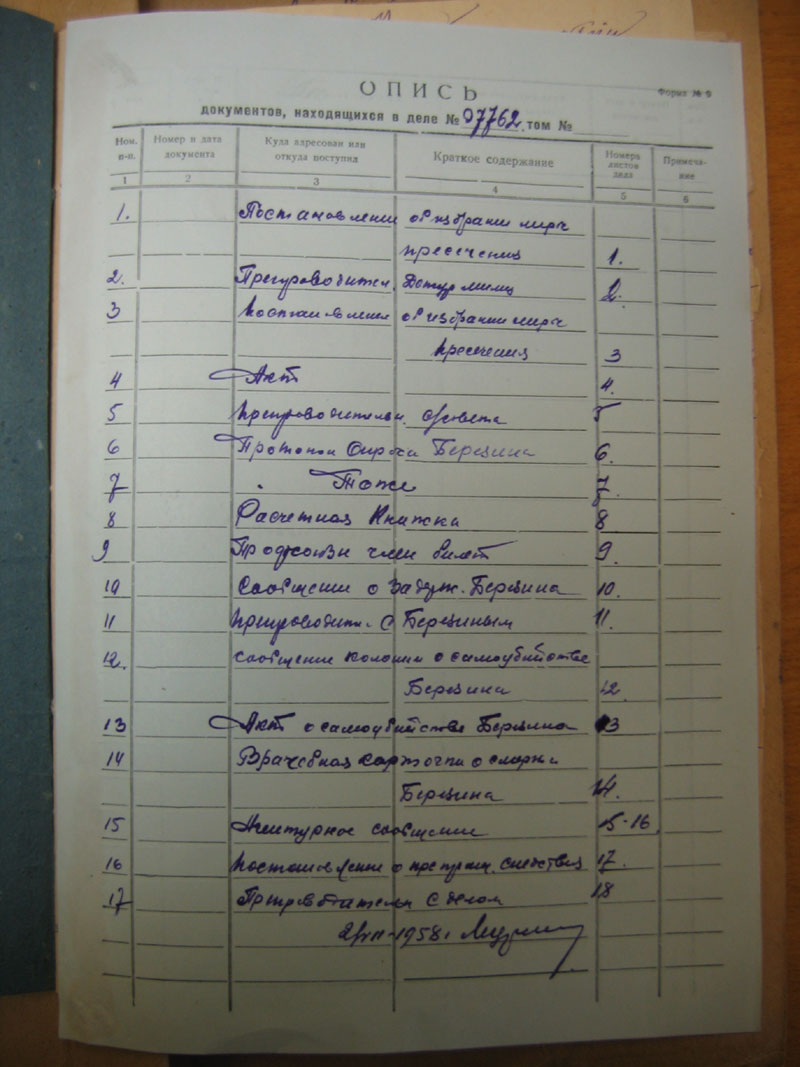 ОПИСЬ
Форма № 9
документов, находящихся в деле № 07762, том №
Ном. п-п. Номер и дата документа Куда адресован или откуда поступил Краткое содержание Номера листов дела Примеча-ние
1 2 3 4 5 6
1. Постановление об избрании меры
пресечения 1.
2. Препроводител. 2.
3 Постановление об избрании меры
пресечения 3
4 Акт 4.
5 Препроводительн. 5
6 Протокол Опроса Березина 6.
7 Тоже 7.
8 Расчетная Книжка 8
9 Профсоюзн член билет 9.
10 Сообщение о задерж. Березина 10.
11 Препроводит. с Березиным 11.
12. Сообщение колонии о самоубийстве
Березина 12
13 Акт о самоубийстве Березина 13
14 Врачебная карточка о смерти
Березина 14.
15 Агентурное сообщение 15-16
16 Постановление о прекращ. следствия 17.
17 Препроводительн с делом 18
1958г